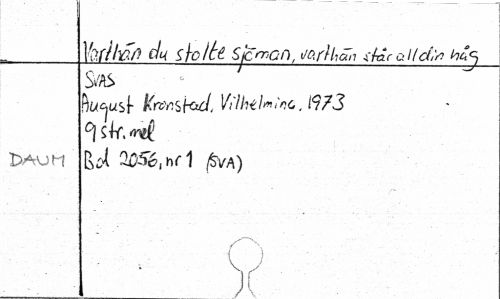 Varthän du stolte sjöman, varthän står all din håg
SVAS
August Kronstad, Vilhelmina, 1973
9 str. mel
DAUM Bd 2056, nr 1 (SVA)